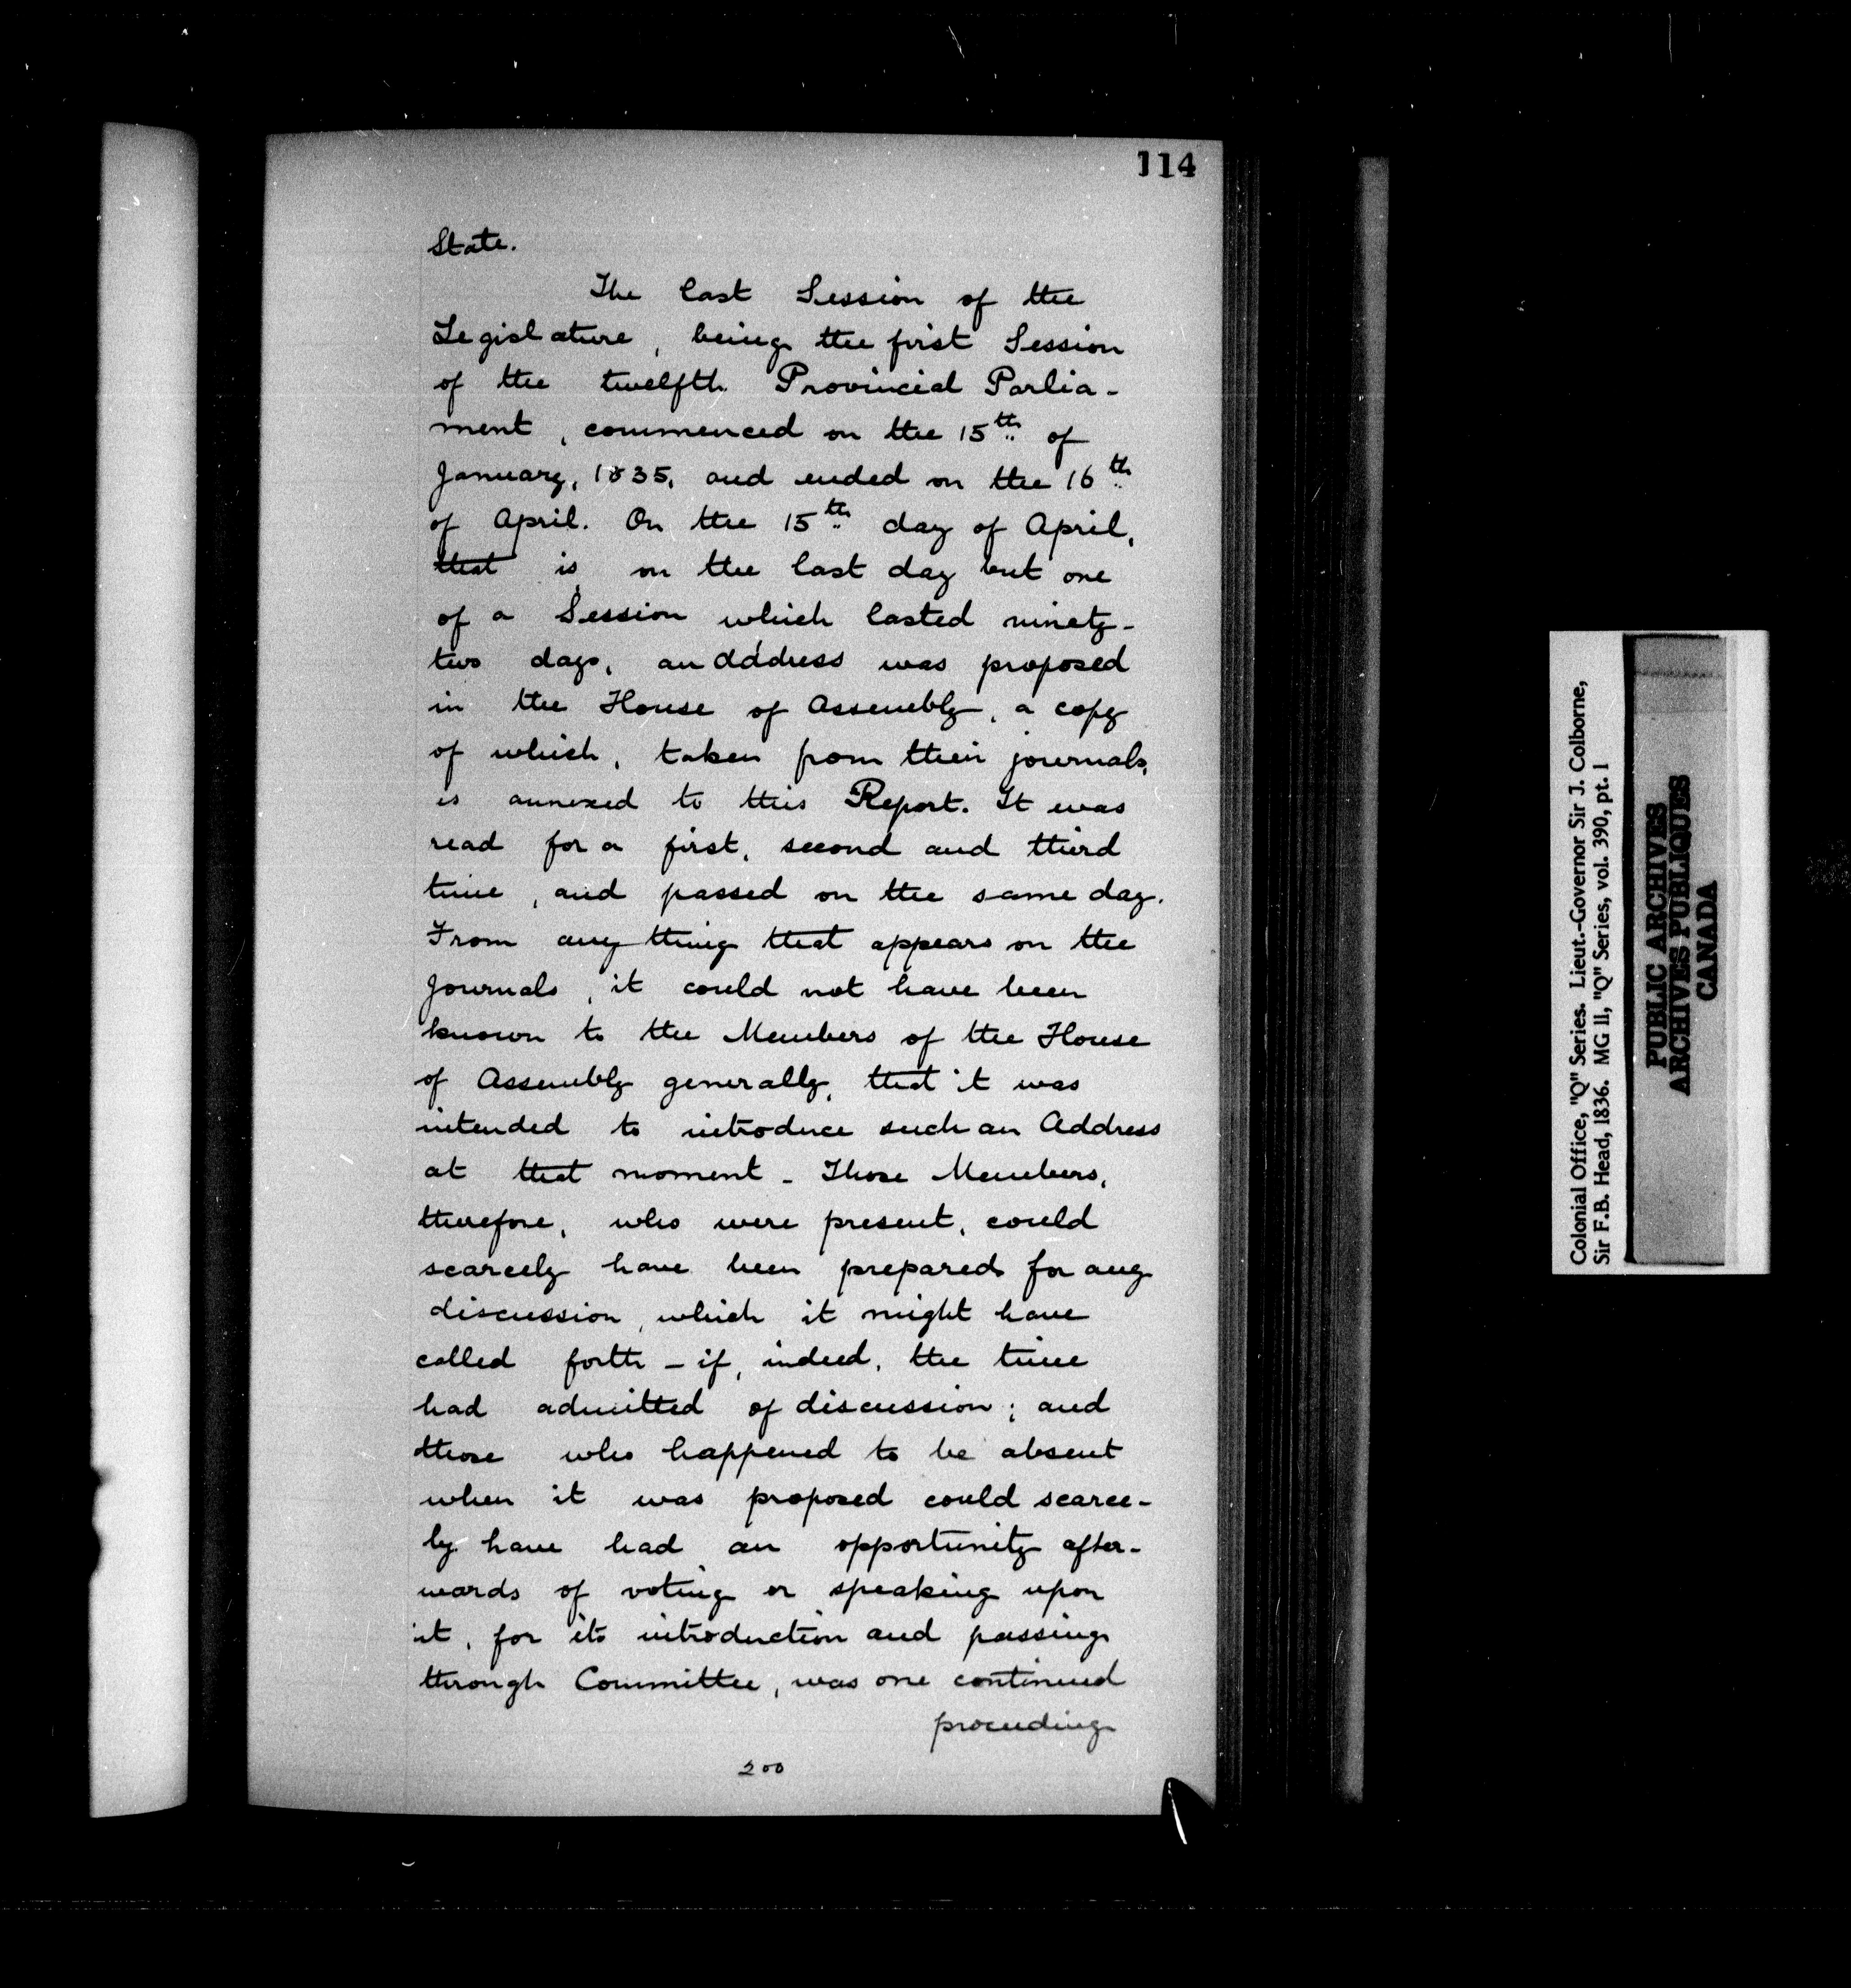 114
State.
The last Session of the
Legislature, being the first Session
of the twelfth Provincial Parlia-
ment, commenced on the 15th of
January, 1835, and ended on the 16th
of April. On the 15th day of April,
that is, on the last day but one
of a Session which lasted ninety-
two days, an address was proposed
in the House of Assembly, a copy
of which, taken from their journals,
is annexed to this Report. It was
read for a first, second and third
time, and passed on the same day.
From any thing that appears on the
Journals, it could not have been
known to the Members of the House
of Assembly generally, that it was
intended to introduce such an Address
at that moment - Those Members,
therefore, who were present, could
scarcely have been prepared for any
discussion, which it might have
called forth - if, indeed, the time
had admitted of discussion; and
those who happened to be absent
when it was proposed could scarce-
ly have had an opportunity after-
wards of voting or speaking upon
it, for its introduction and passing
through Committee, was one continued
proceeding
200
Colonial Office, "Q" Series. Lieut.-Governor Sir J. Colborne,
Sir F.B. Head, 1836. MG 11, "Q" Series, vol. 390, pt. 1
PUBLIC ARCHIVES
ARCHIVES PUBLIQUES
CANADA